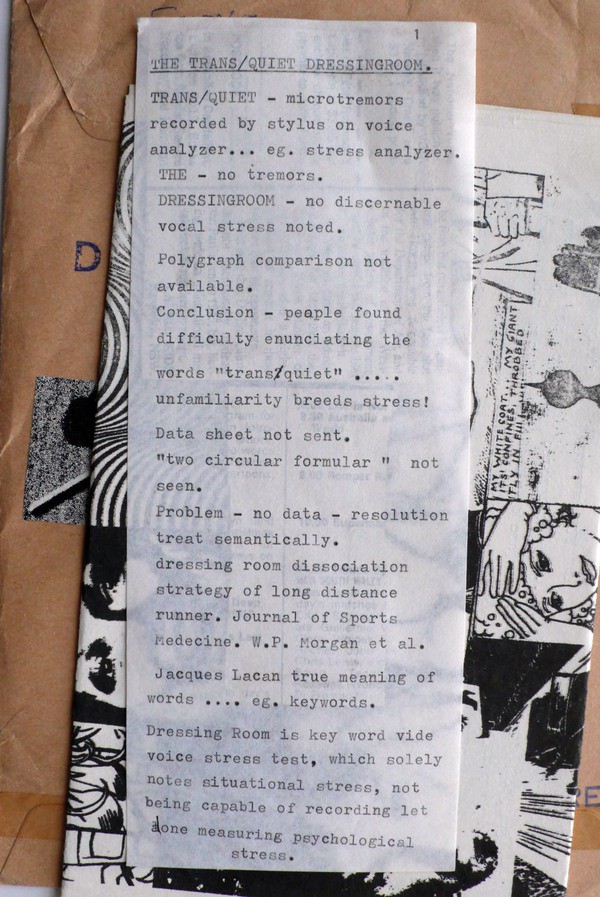 1
THE TRANS/QUIET DRESSINGROOM.
TRANS/QUIET - microtremors
recorded by stylus on voice
analyzer... eg. stress analyzer.
THE - no tremors.
DRESSINGROOM - no discernable
vocal stress noted.
Polygraph comparison not
available.
Conclusion - people found
difficulty enunciating the
words "trans/quiet" .....
unfamiliarity breeds stress!
Data sheet not sent.
"two circular formular " not
seen.
Problem - no data - resolution
treat semantically.
dressing room dissociation
strategy of long distance
runner. Journal of Sports
Medecine. W.P. Morgan et al.
Jacques Lacan true meaning of
words .... eg. keywords.
Dressing Room is key word vide
voice stress test, which solely
notes situational stress, not
being capable of recording let
alone measuring psychological
stress.
D
MY WHITE COAT. MY GIANT
ITS' CONFINES, THROBBED
TLY IN
RE